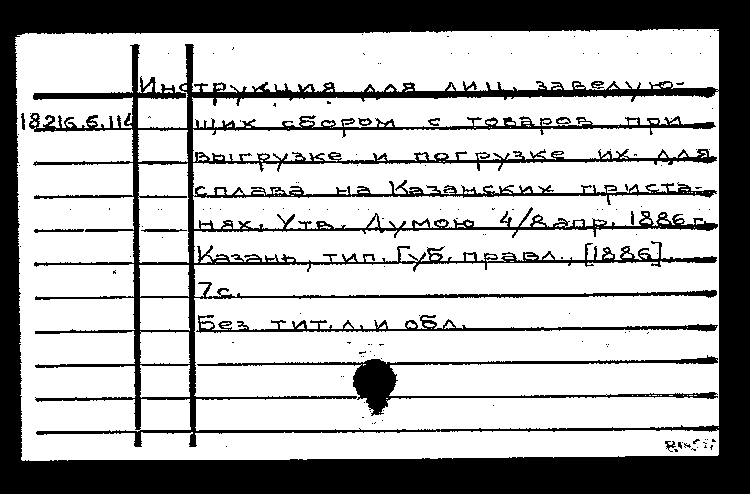 Инструкция для лиц, заведую-
18216.6.114 щих сбором с товаров при
выгрузке и погрузке их для
сплава на Казанских приста-
нях. Утв. Думою 4/8 апр. 1886 г.
Казань, тип. Губ. правл., [1886].
7 с.
Без тит. л. и обл.